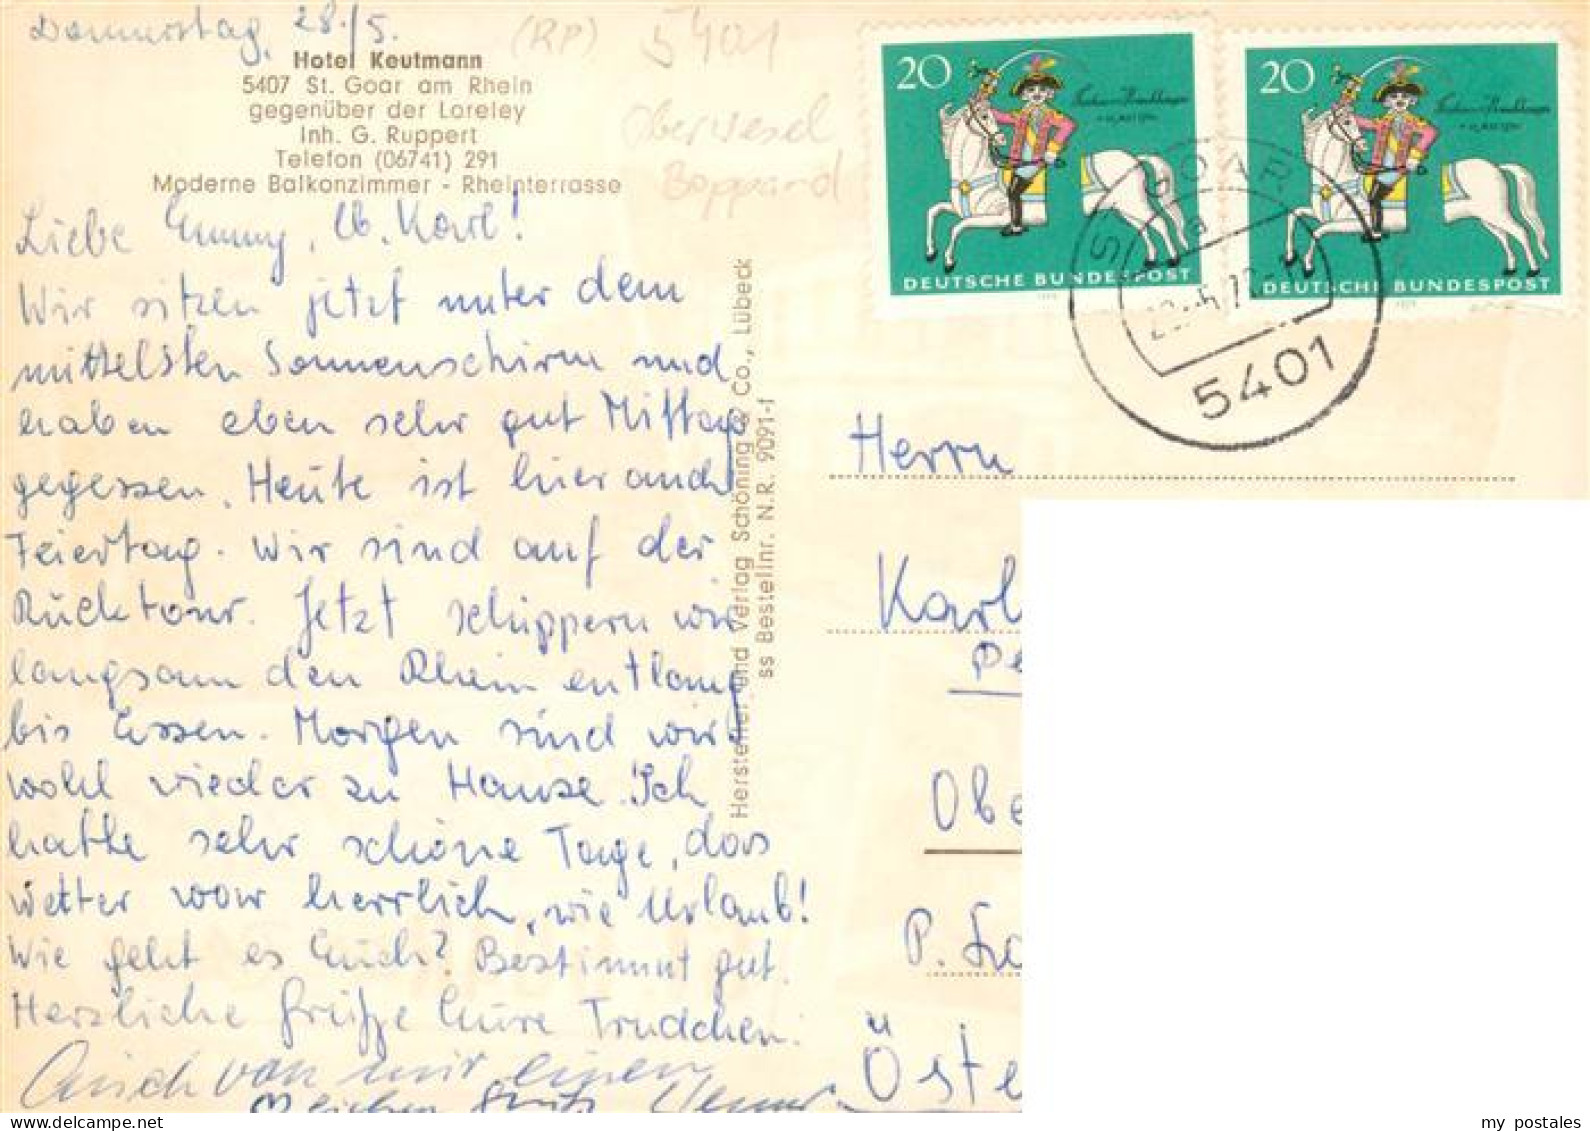 Donnerstag, 28./5.
(RP) 5401
Oberwesel
Boppard
Hotel Keutmann
5407 St. Goar am Rhein
gegenüber der Loreley
Inh. G. Ruppert
Telefon (06741) 291
Moderne Balkonzimmer - Rheinterrasse
Liebe Emmy, lb. Karl!
Wir sitzen jetzt unter dem
mittelsten Sonnenschirm und
haben eben sehr gut Mittag
gegessen. Heute ist hier auch
Feiertag. Wir sind auf der
Rücktour. Jetzt schippern wir
langsam den Rhein entlang
bis Essen. Morgen sind wir
wohl wieder zu Hause. Ich
hatte sehr schöne Tage, das
Wetter war herrlich, wie Urlaub!
Wie geht es Euch? Bestimmt gut.
Herzliche Grüße Eure Trudchen.
Auch von mir einen
Hersteller und Verlag Schöning & Co., Lübeck
ss Bestellnr. N.R. 9091-f
20
DEUTSCHE BUNDESPOST
20
DEUTSCHE BUNDESPOST
ST GOAR
a
5401
Herrn
Karl
Pe
Obe
P. Lo
Öste
my postales